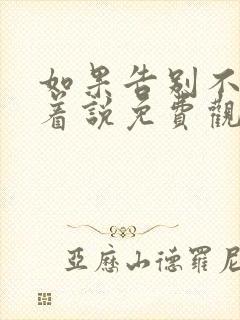 如果告别不
着說免費觀
亞歷山德羅尼